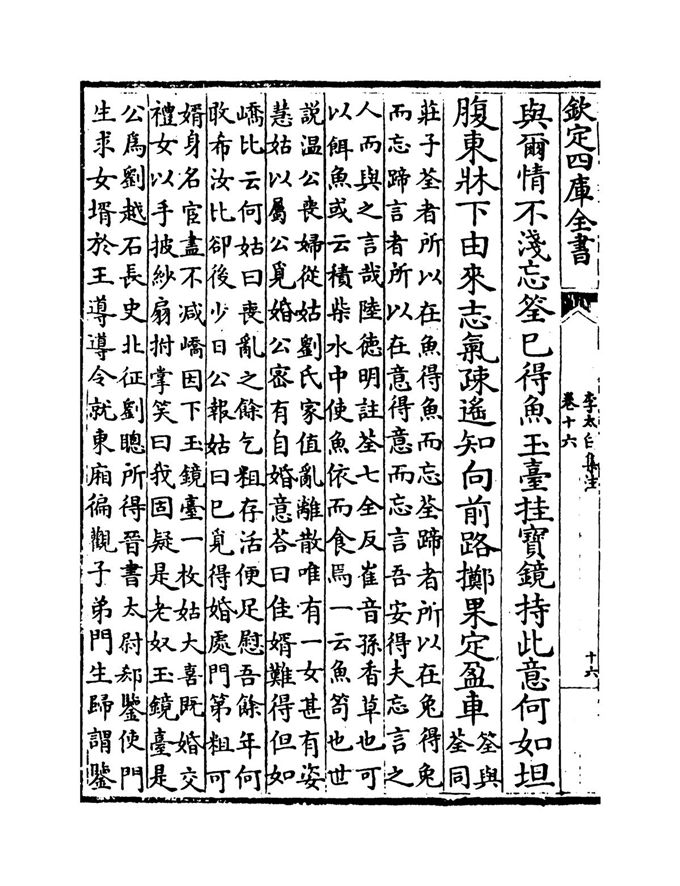 欽定四庫全書
李太白集注
卷十六
十六
與爾情不淺忘筌已得魚玉臺挂寶鏡持此意何如坦
腹東牀下由來志氣疎遙知向前路擲果定盈車
筌與
荃同
莊子荃者所以在魚得魚而忘荃蹄者所以在兔得兔
而忘蹄言者所以在意得意而忘言吾安得夫忘言之
人而與之言哉陸徳明註荃七全反崔音孫香草也可
以餌魚或云積柴水中使魚依而食焉一云魚笱也世
説温公喪婦從姑劉氏家值亂離散唯有一女甚有姿
慧姑以屬公覓婚公宻有自婚意荅曰佳婿難得但如
嶠比云何姑曰喪亂之餘乞粗存活便足慰吾餘年何
敢希汝比卻後少日公報姑曰已覓得婚處門第粗可
婿身名宦盡不减嶠因下玉鏡臺一枚姑大喜既婚交
禮女以手披紗扇拊掌笑曰我固疑是老奴玉鏡臺是
公為劉越石長史北征劉聰所得晉書太尉郄鑒使門
生求女壻於王導導令就東廂徧觀子弟門生歸謂鑒